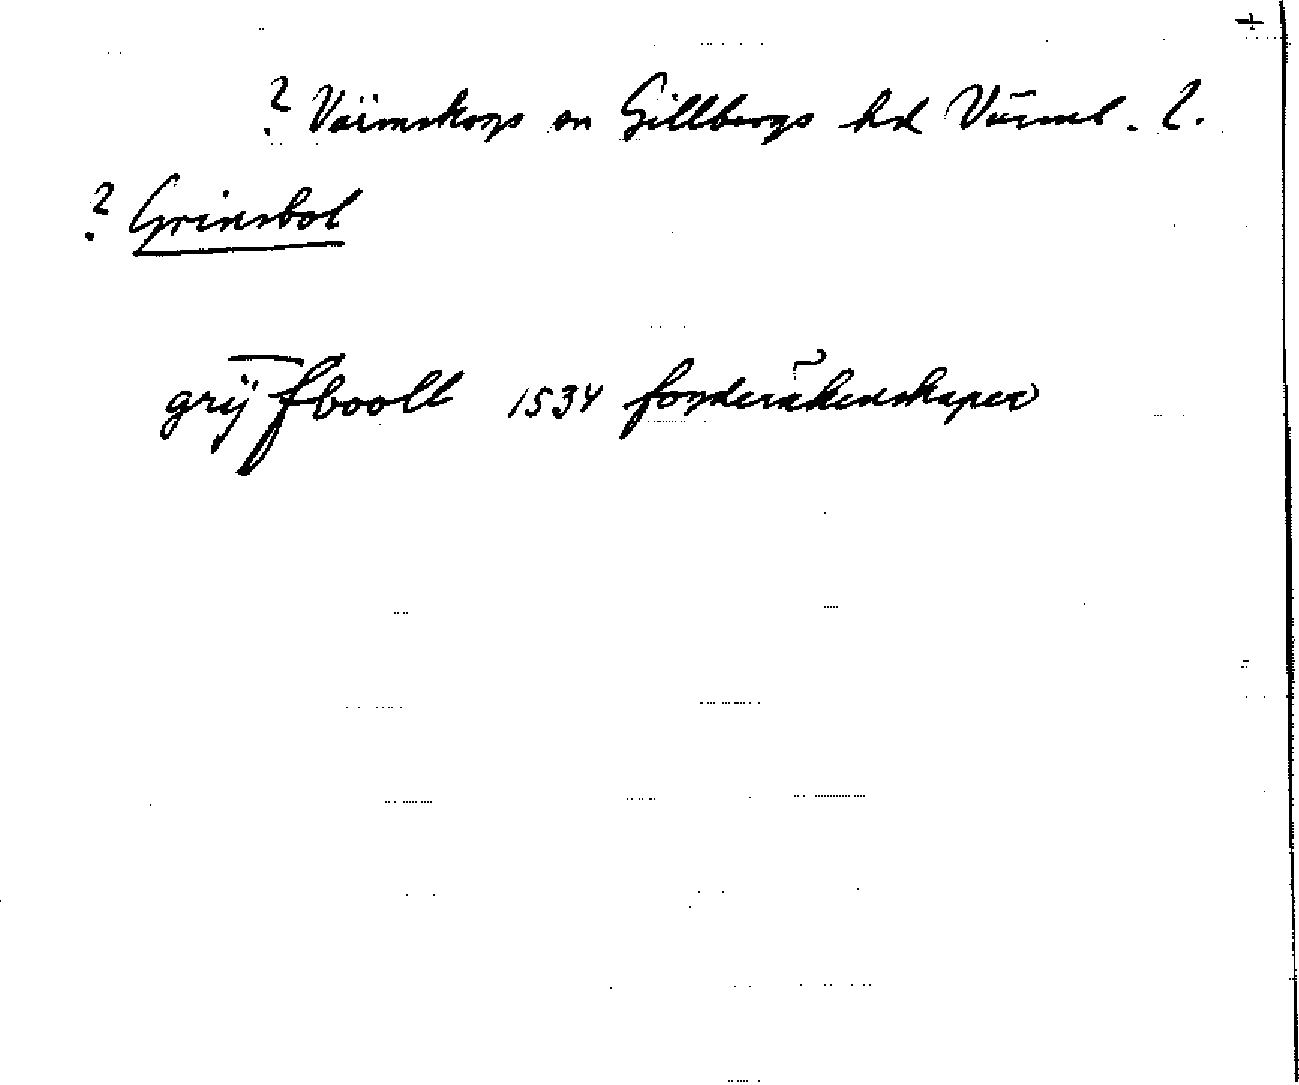 +
? Värmskogs sn Gillbergs hd Värml. l.
? Grinsbol
grÿſbooll 1534 fogderäkenskaper